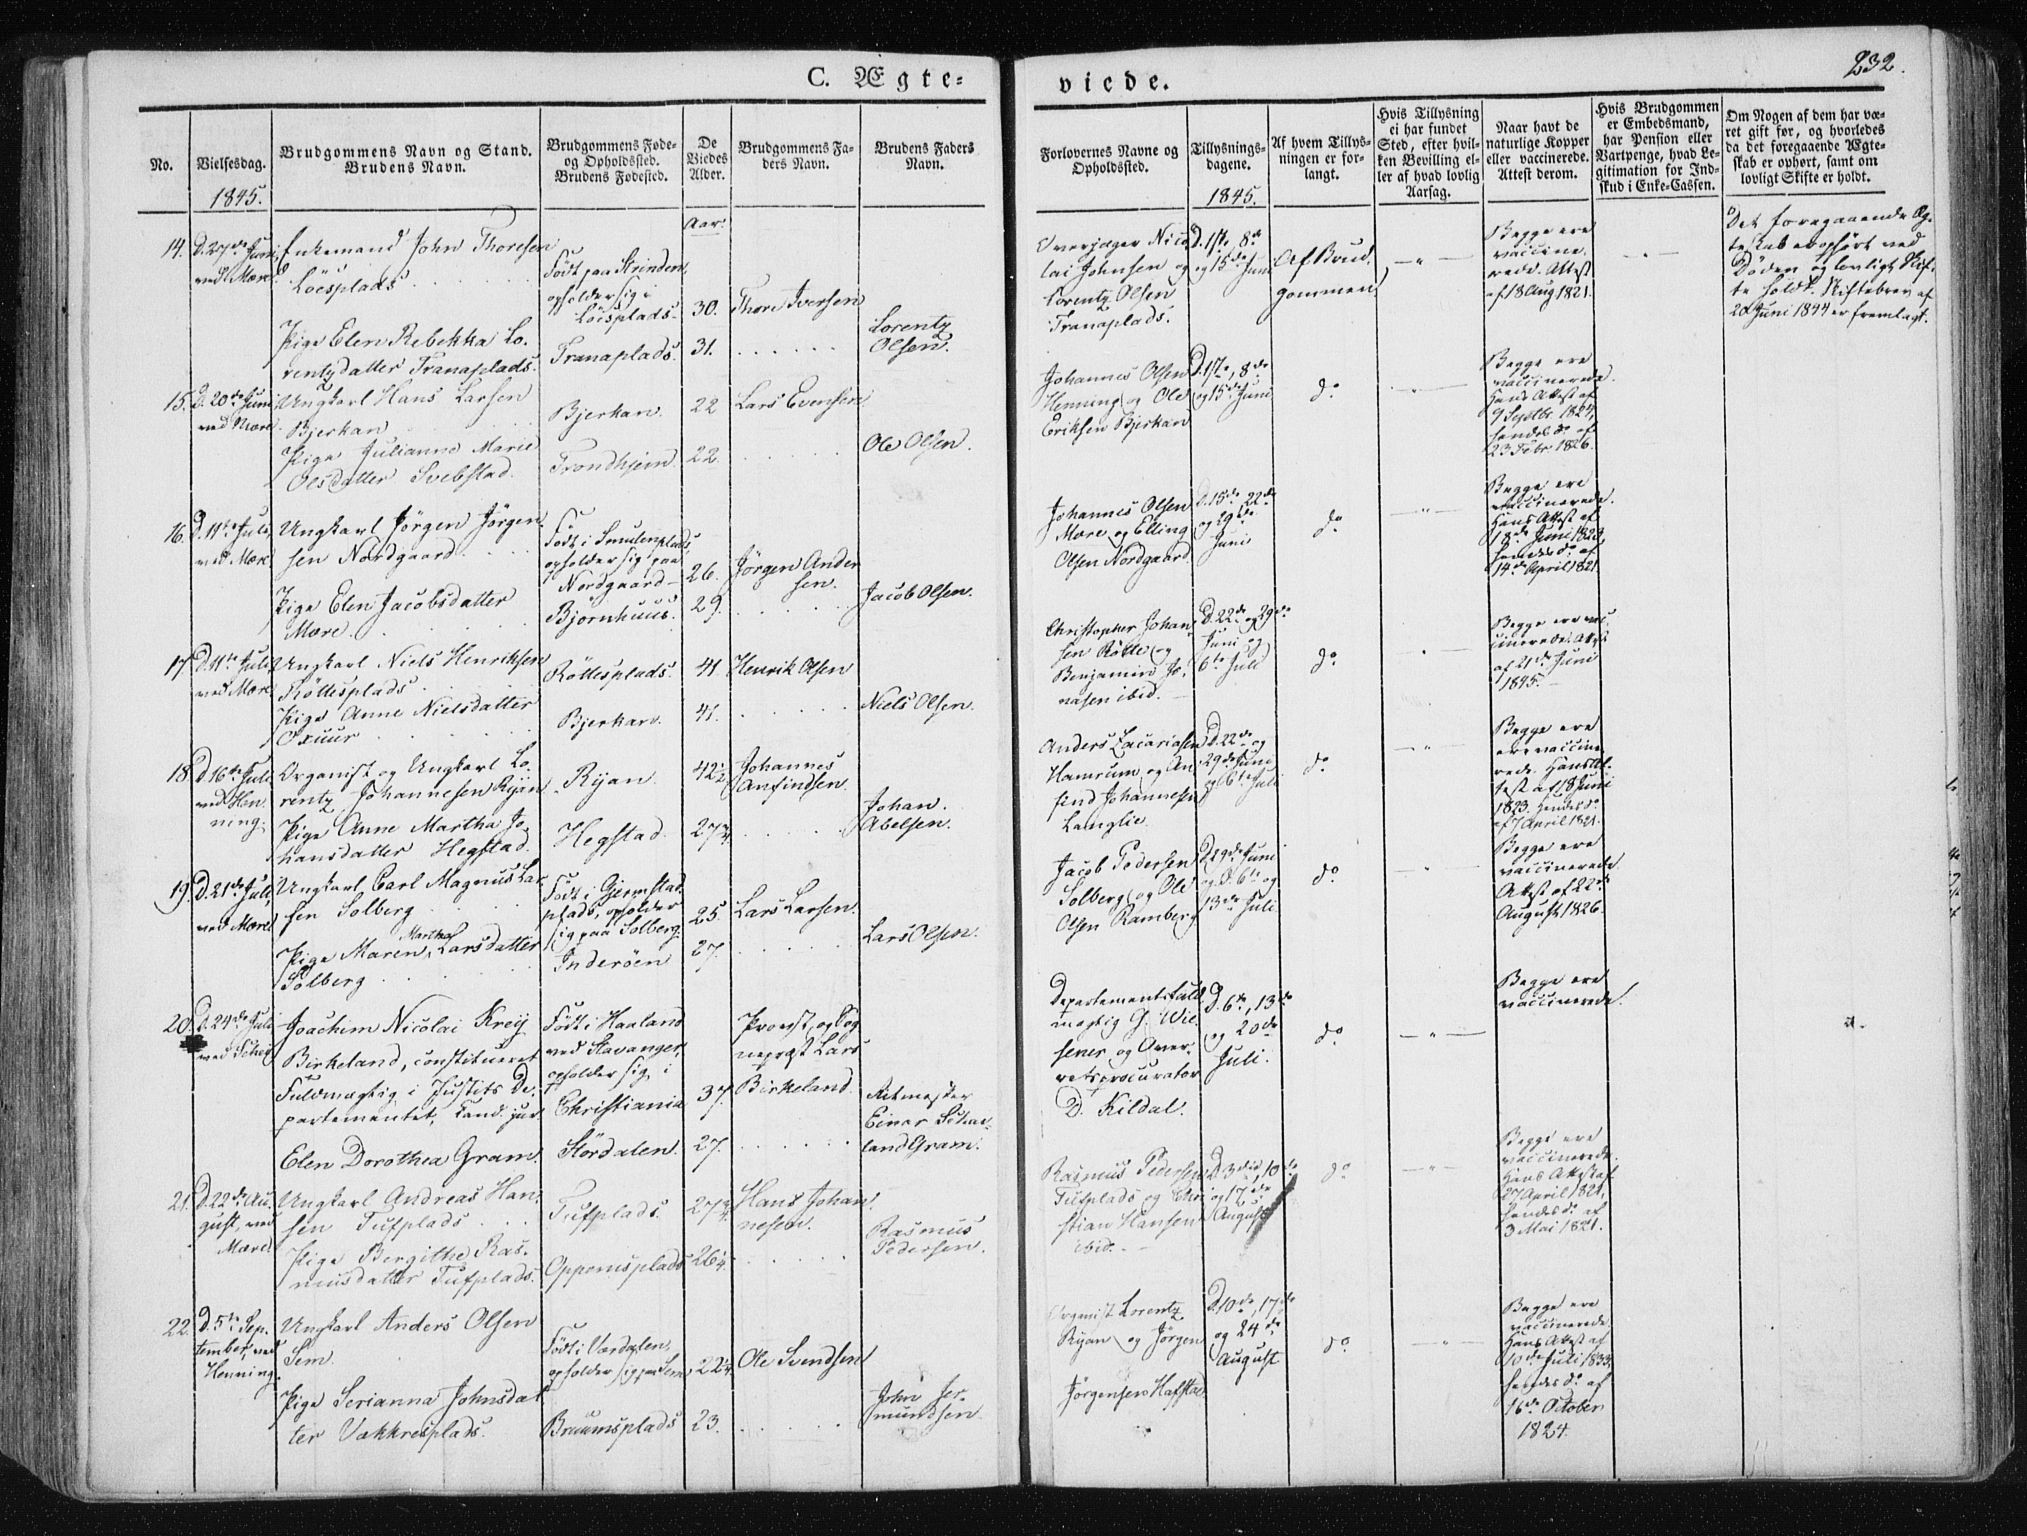 232.
C. Ægte-
viede.
No.
Vielsesdag.
1845.
Brudgommens Navn og Stand.
Brudens Navn.
Brudgommens Føde-
og Opholdssted.
Brudens Fødested.
De
Viedes
Alder.
Brudgommens Fa-
ders Navn.
Brudens Faders
Navn.
Forlovernes Navne og
Opholdssted.
Tillysnings-
dagene.
1845.
Af hvem Tillys-
ningen er for-
langt.
Hvis Tillysning
ei har fundet
Sted, efter hvil-
ken Bevilling el-
ler af hvad lovlig
Aarsag.
Naar havt de
naturlige Kopper
eller vaccinerede.
Attest derom.
Hvis Brudgommen
er Embedsmand,
har Pension eller
Vartpenge, hvad Le-
gitimation for Ind-
skud i Enke-Cassen.
Om Nogen af dem har væ-
ret gift før, og hvorledes
da det foregaaende Ægte-
skab er ophørt, samt om
lovligt Skifte er holdt.
Aar.
14.
D. 27de Juni,
ved Mære
Enkemand John Thoresen
Löesplads
Pige Elen Rebekka Lo-
rentzdatter Tranaplads.
Födt paa Strinden,
opholder sig i
Löesplads
Tranaplads.
30.
31.
Thore Iversen
Lorentz
Olsen.
Overjæger Nico-
lai Johnsen og
Lorentz Olsen
Tranaplads.
D. 1ste, 8de
og 15de Juni
Af Brud-
gommen
Begge ere
vaccine-
rede. Attest
af 18 Aug 1821.
Det foregaaende Æg-
teskab er ophørt ved
Döden og lovligt Skif-
te holdt. Skiftebrev af
20 Juni 1844 er fremlagt.
15.
D. 20de Juni
ved Mære
Ungkarl Hans Larsen
Bjerkan
Pige Julianna Marie
Olsdatter Svebstad.
Bjerkan.
Trondhjem.
22
22.
Lars Evensen
Ole Olsen.
Johannes Olsen
Henning og Ole
Eriksen Bjerkan
D. 1ste, 8de
og 15de Juni
do
Begge ere
vaccinerede.
Hans Attest af
9 Septbr 1824,
hendes do af
23 Febr 1826.
16.
D. 11te Juli,
ved Mære
Ungkarl Jörgen Jörgen-
sen Nordgaard
Pige Elen Jacobsdatter
Mære.
Födt i Smulenplads
opholder sig paa
Nordgaard
Bjørnhuus.
26.
29.
Jörgen Ander-
sen.
Jacob Olsen.
Johannes Olsen
Mære og Elling
Olsen Nordgaard
D. 15de, 22de
og 29de
Juni
do
Begge ere
vaccinerede.
Hans Attest af
18de Juni 1823,
hendes do af
14de April 1821.
17.
D. 11te Juli,
ved Mære
Ungkarl Niels Henriksen
Röttesplads
Pige Anne Nielsdatter
Röttesplads.
Bjerkan.
41
41.
Henrik Olsen
Niels Olsen.
Christopher Johan-
sen Rötte og
Benjamin Jo-
nasen ibid.
D. 22de og 29de
Juni og
6te Juli
do
Begge ere vac-
cinerede. Attest
af 21de Juni
1845.
18.
D. 16de Juli
ved Hen-
ning.
Organist og Ungkarl Lo-
rentz Johannesen Ryan
Pige Anne Martha Jo-
hansdatter Hegstad.
Ryan.
Hegstad.
42½
27¾
Johannes
Anfindsen.
Johan
Abelsen.
Anders Zacariasen
Hamrum og An-
find Johannesen
Langlie.
D. 22de og
29de Juni
og 6te Juli
do
Begge ere
ere vaccine-
rede. Hans At-
test af 18 Juni
1823. Hendes do
af 7 April 1821.
19.
D. 21de Juli,
ved Mære
Ungkarl Carl Magnus Lar-
sen Solberg
Pige Maren Martha Larsdatter
Solberg
Födt i Gjermstad
plads, opholder
sig paa Solberg.
Inderöen
25.
27.
Lars Larsen.
Lars Olsen.
Jacob Pedersen
Solberg og Ole
Olsen Ramberg
D. 29de Juni
og D. 6te og
13de Juli.
do
Begge ere
vaccinerede
Attest af 22de
August 1826.
20.
D. 24de Juli
ved Schei
Joachim Nicolai Kreij
Birkeland, constitueret
Fuldmægtig i Justits De-
partementet, Cand. jur
Elen Dorothea Gram.
Födt i Haaland
ved Stavanger,
opholder sig i
Christiania
Stördalen.
37.
27.
Provst og Sog-
nepræst Lars
Birkeland.
Ritmester
Einar Schav-
land Gram.
Departementsfuld-
mægtig G. Wie-
sener og Over-
retsprocurator
D. Kildal.
D. 6te, 13de
og 20de
Juli.
do
Begge ere
vaccinerede.
21.
D. 22de Au-
gust, ved
Mære
Ungkarl Andreas Han-
sen Tufplads
Pige Bergithe Ras-
musdatter Tufplads.
Tufplads.
Oppemsplads
27¾
26¼.
Hans Johan-
nesen.
Rasmus
Pedersen.
Rasmus Pedersen
Tufplads og Chri-
stian Hansen
ibid.
D. 3die, 10de
og 17de
August
do
Begge ere
vaccinerede.
Hans Attest af
27 April 1821,
hendes do af
3 Mai 1821.
22.
D. 5te Sep-
tember, ved
Henning.
Ungkarl Anders Olsen
Sem.
Pige Serianna Johnsdat-
ter Vakkresplads.
Födt i Værdalen,
opholder sig paa Sem
Bruumsplads
22¼
23.
Ole Svendsen
John Jer-
mundsen.
Organist Lorentz
Ryan og Jörgen
Jörgensen Hafstad
D. 10de, 17de
og 24de
August
do
Begge ere
vaccinerede.
Hans Attest af
10de Juli 1833,
hendes do af
16de October
1824.